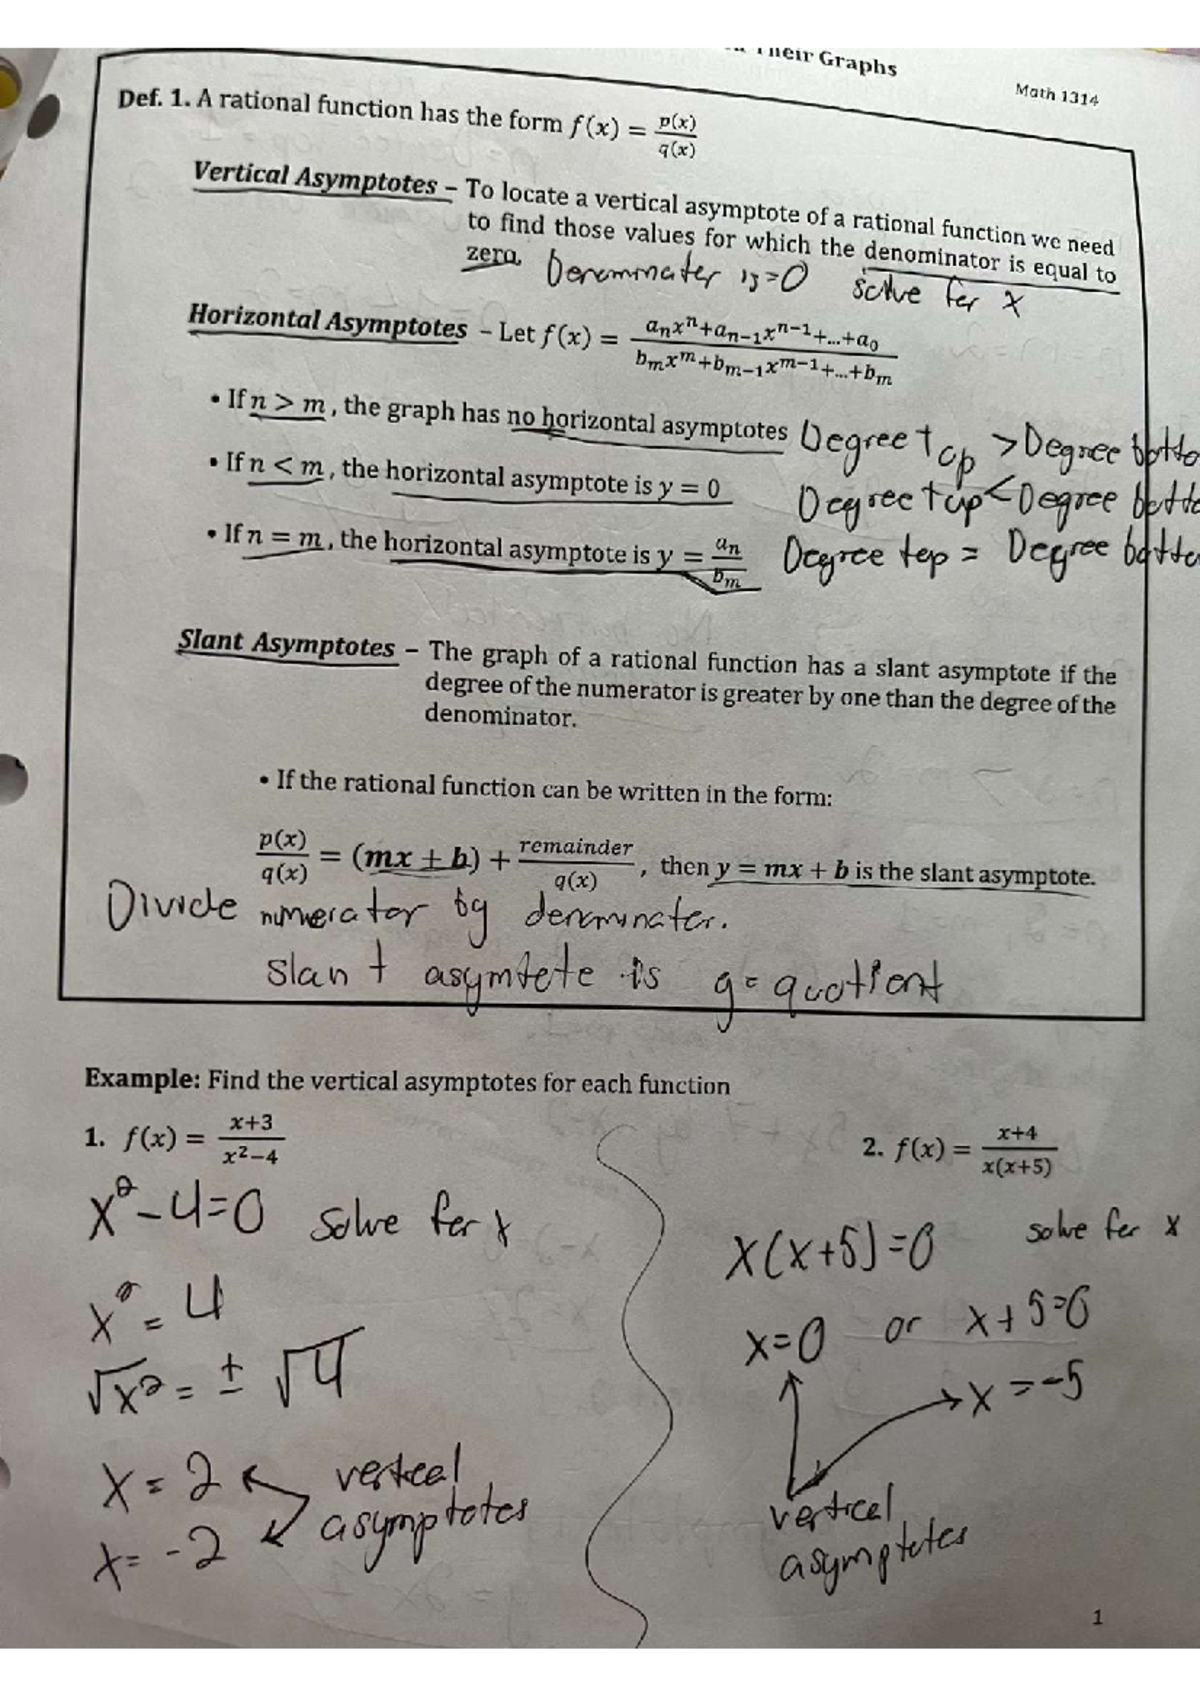 Their Graphs
Math 1314
Def. 1. A rational function has the form f(x) = p(x)/q(x)
Vertical Asymptotes – To locate a vertical asymptote of a rational function we need
to find those values for which the denominator is equal to
zero. Denominater is =0 solve for x
Horizontal Asymptotes – Let f(x) = (aₙxⁿ+aₙ₋₁xⁿ⁻¹+...+a₀)/(bₘxᵐ+bₘ₋₁xᵐ⁻¹+...+bₘ)
• If n > m, the graph has no horizontal asymptotes Degree top > Degree botto
• If n < m, the horizontal asymptote is y = 0 Degree top < Degree botto
• If n = m, the horizontal asymptote is y = aₙ/bₘ Degree top = Degree botto
Slant Asymptotes – The graph of a rational function has a slant asymptote if the
degree of the numerator is greater by one than the degree of the
denominator.
• If the rational function can be written in the form:
p(x)/q(x) = (mx + b) + remainder/q(x), then y = mx + b is the slant asymptote.
Divide numerator by denominater.
slant asymtote is y = quotient
Example: Find the vertical asymptotes for each function
1. f(x) = (x+3)/(x²−4)
x²-4=0 solve for x
x² = 4
√x² = ± √4
x = 2 vertical
x = -2 asymptotes
2. f(x) = (x+4)/(x(x+5))
solve for x
x(x+5)=0
x=0 or x+5=0
x=-5
vertical
asymptotes
1